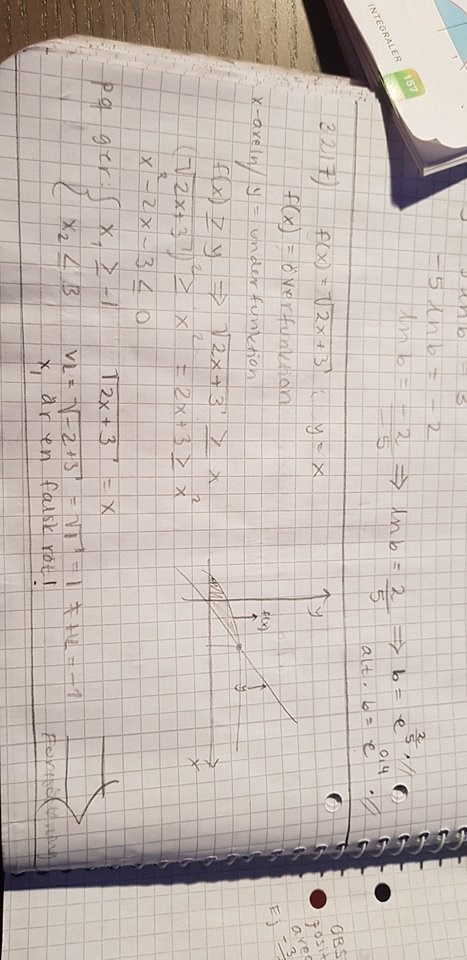 INTEGRALER
157
-5 ln b = -2
ln b = -2/-5 ⇒ ln b = 2/5 ⇒ b = e^(2/5) //
alt. b = e^(0,4) //
3217) f(x) = √(2x+3) ; y = x
f(x) = överfunktion
x-axeln/y = underfunktion
f(x) ≥ y ⇒ √(2x+3) ≥ x
(√(2x+3))² ≥ x² = 2x+3 ≥ x²
x² - 2x - 3 ≤ 0
pq ger: { x₁ ≥ -1
{ x₂ ≤ 3
√(2x+3) = x
VL = √(-2+3) = √1 = 1 ≠ HL = -1
x₁ är en falsk rot!
y
f(x)
y
x
OBS
posit
area
E)